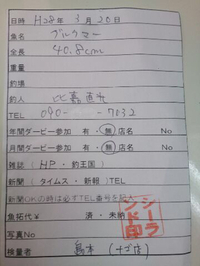 日時 H28年 3月 20日
魚名 ブルクマー
全長 40.8cm
重量
釣場
釣人 比嘉直
TEL 090- 7032
年間ダービー参加 有・無 店名 No
月間ダービー参加 有・無 店名 No
雑誌 ( HP ・ 釣王国 )
新聞 ( タイムス ・ 新報 ) TEL
新聞OKの時は必ずTEL番号を記入
魚拓代￥ 済 ・ 未納
写真No
検量者 島本
シーランド印